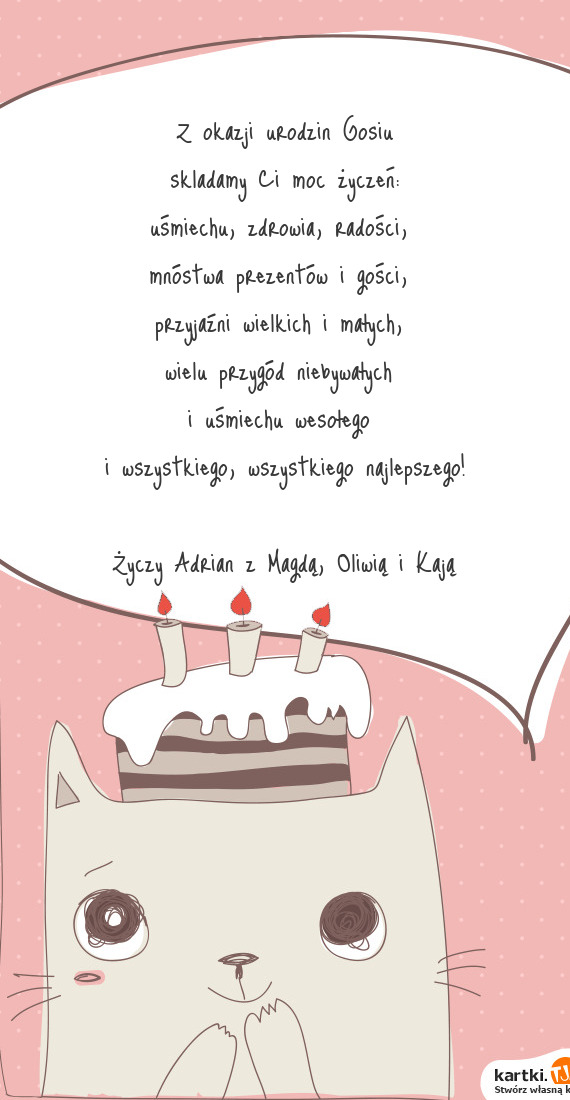 Z okazji urodzin Gosiu
skladamy Ci moc życzeń:
uśmiechu, zdrowia, radości,
mnóstwa prezentów i gości,
przyjaźni wielkich i małych,
wielu przygód niebywałych
i uśmiechu wesołego
i wszystkiego, wszystkiego najlepszego!
Życzy Adrian z Magdą, Oliwią i Kają
kartki.TJ
Stwórz własną k